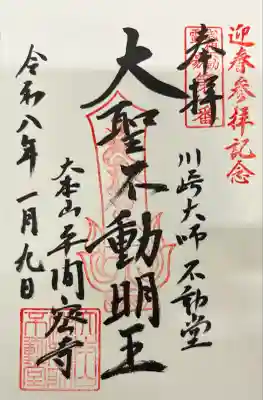 迎春参拝記念
奉拝
川崎大師 不動堂
大聖不動明王
大本山 平間密寺
令和八年一月九日